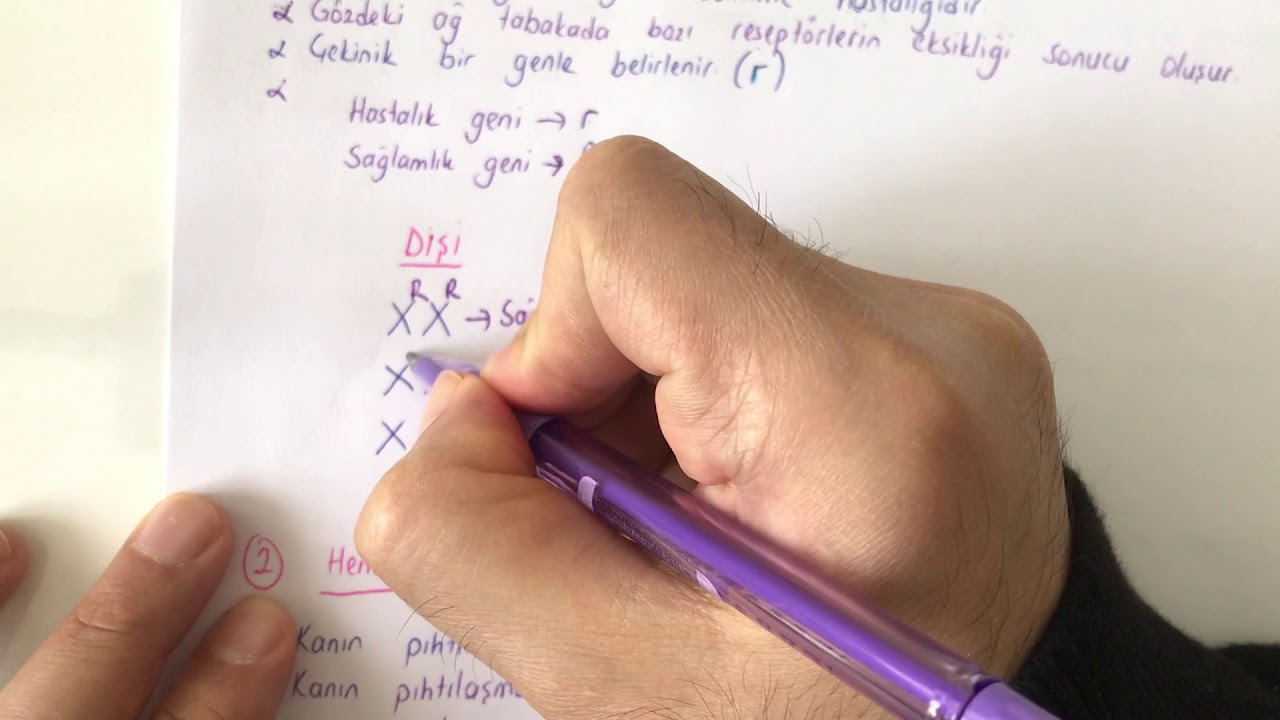 hastalığıdır.
α Gözdeki ağ tabakada bazı reseptörlerin eksikliği sonucu oluşur.
α Çekinik bir genle belirlenir. (r)
α
Hastalık geni → r
Sağlamlık geni →
Dişi
X^R X^R →
X
X
②
Kanın
Kanın